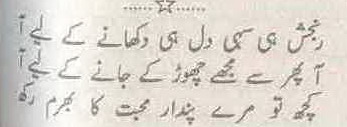 رنجش ہی سہی دل ہی دکھانے کے لیے آ
آ پھر سے مجھے چھوڑ کے جانے کے لیے آ
کچھ تو مرے پندار محبت کا بھرم رکھ